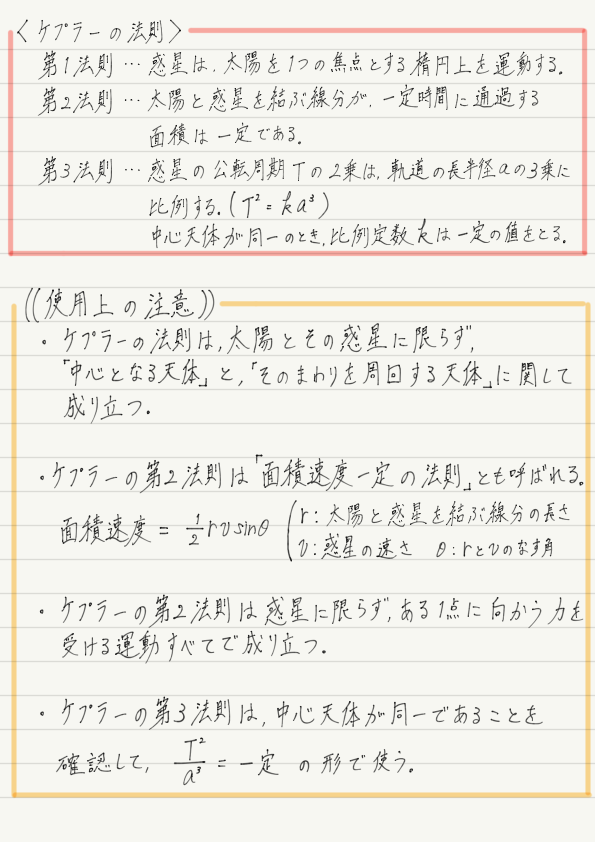 〈ケプラーの法則〉
第1法則 … 惑星は、太陽を1つの焦点とする楕円上を運動する。
第2法則 … 太陽と惑星を結ぶ線分が、一定時間に通過する
面積は一定である。
第3法則 … 惑星の公転周期Tの2乗は、軌道の長半径aの3乗に
比例する。(T² = ka³)
中心天体が同一のとき、比例定数kは一定の値をとる。
((使用上の注意))
・ケプラーの法則は、太陽とその惑星に限らず、
「中心となる天体」と、「そのまわりを周回する天体」に関して
成り立つ。
・ケプラーの第2法則は「面積速度一定の法則」とも呼ばれる。
面積速度 = 1/2 rvsinθ (r:太陽と惑星を結ぶ線分の長さ
v:惑星の速さ θ:rとvのなす角
・ケプラーの第2法則は惑星に限らず、ある1点に向かう力を
受ける運動すべてで成り立つ。
・ケプラーの第3法則は、中心天体が同一であることを
確認して、 T²/a³ = 一定 の形で使う。